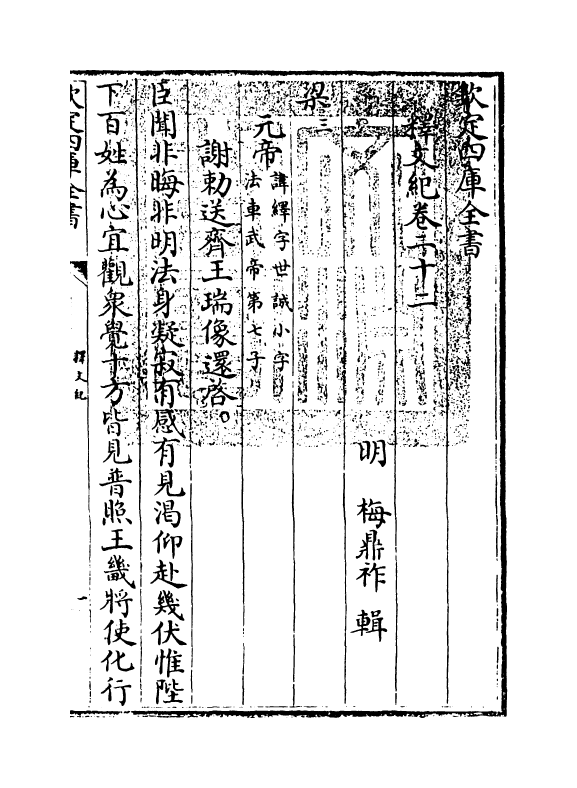 欽定四庫全書
釋文紀卷二十二
明 梅鼎祚 輯
梁三
元帝諱繹字世誠小字法車武帝第七子
謝勅送齊王瑞像還啓。
臣聞非晦非明法身凝寂有感有見渴仰赴幾伏惟陛
下百姓為心宜觀衆覺十方皆見普照王畿將使化行
欽定四庫全書
釋文紀
一